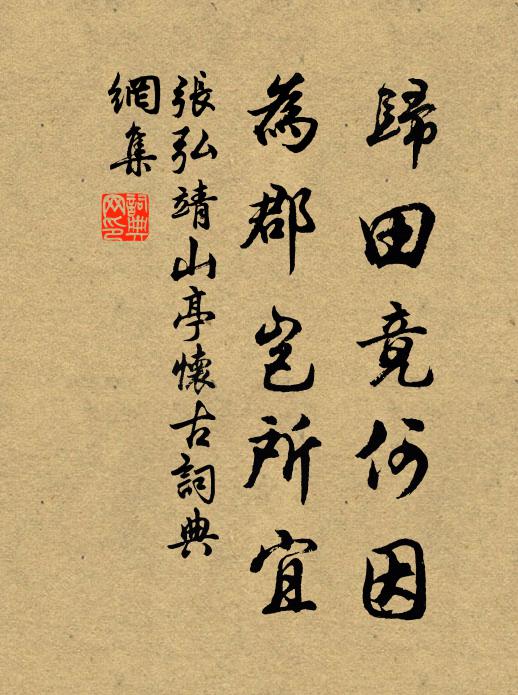 歸田竟何因
為郡豈所宜
張弘靖山亭懷古詞典
網集
詞典網印